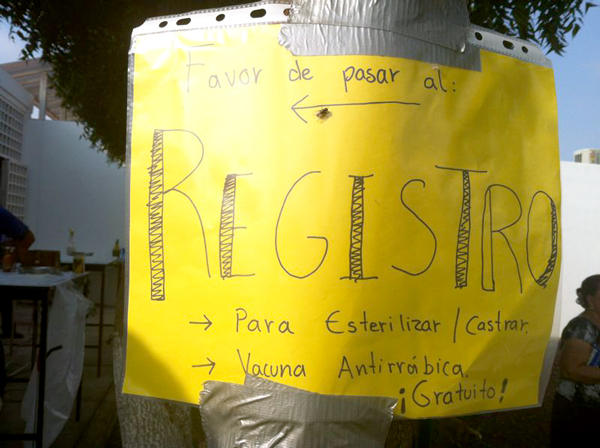 Favor de pasar al:
REGISTRO
→ Para Esterilizar / Castrar.
→ Vacuna Antirrábica.
¡Gratuito!